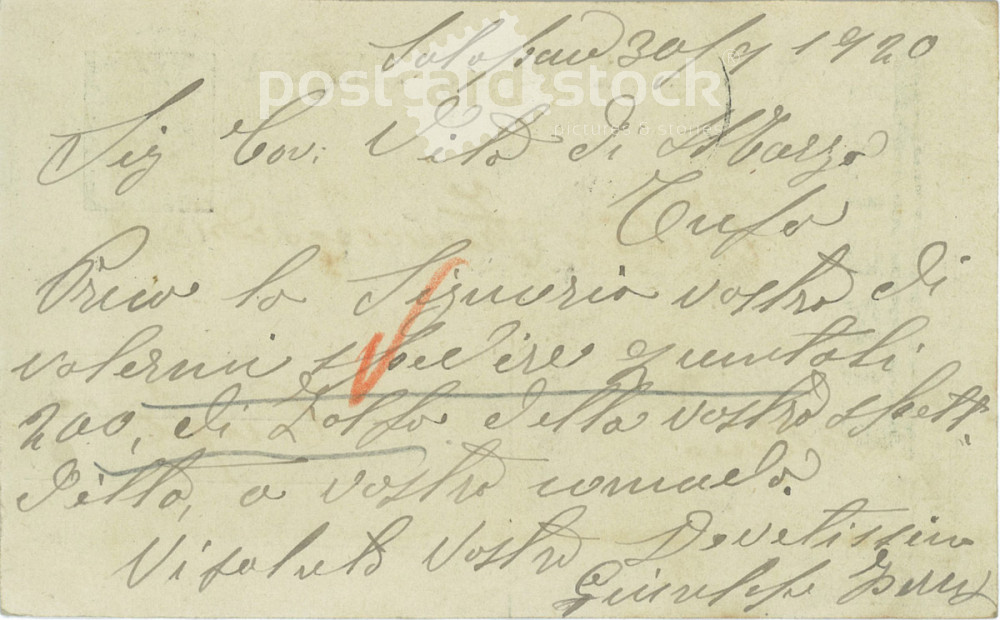 30/9 1920
postcard stock
pictures & stories
Sig Cav: Vito di Marzo
Tufo
Preco la Signoria vostra di
volermi spedire quintali
200, di Zolfo della vostra spett.
Ditta, a vostro comado.
Vi saluto Vostro Devetissimo
Giuseppe